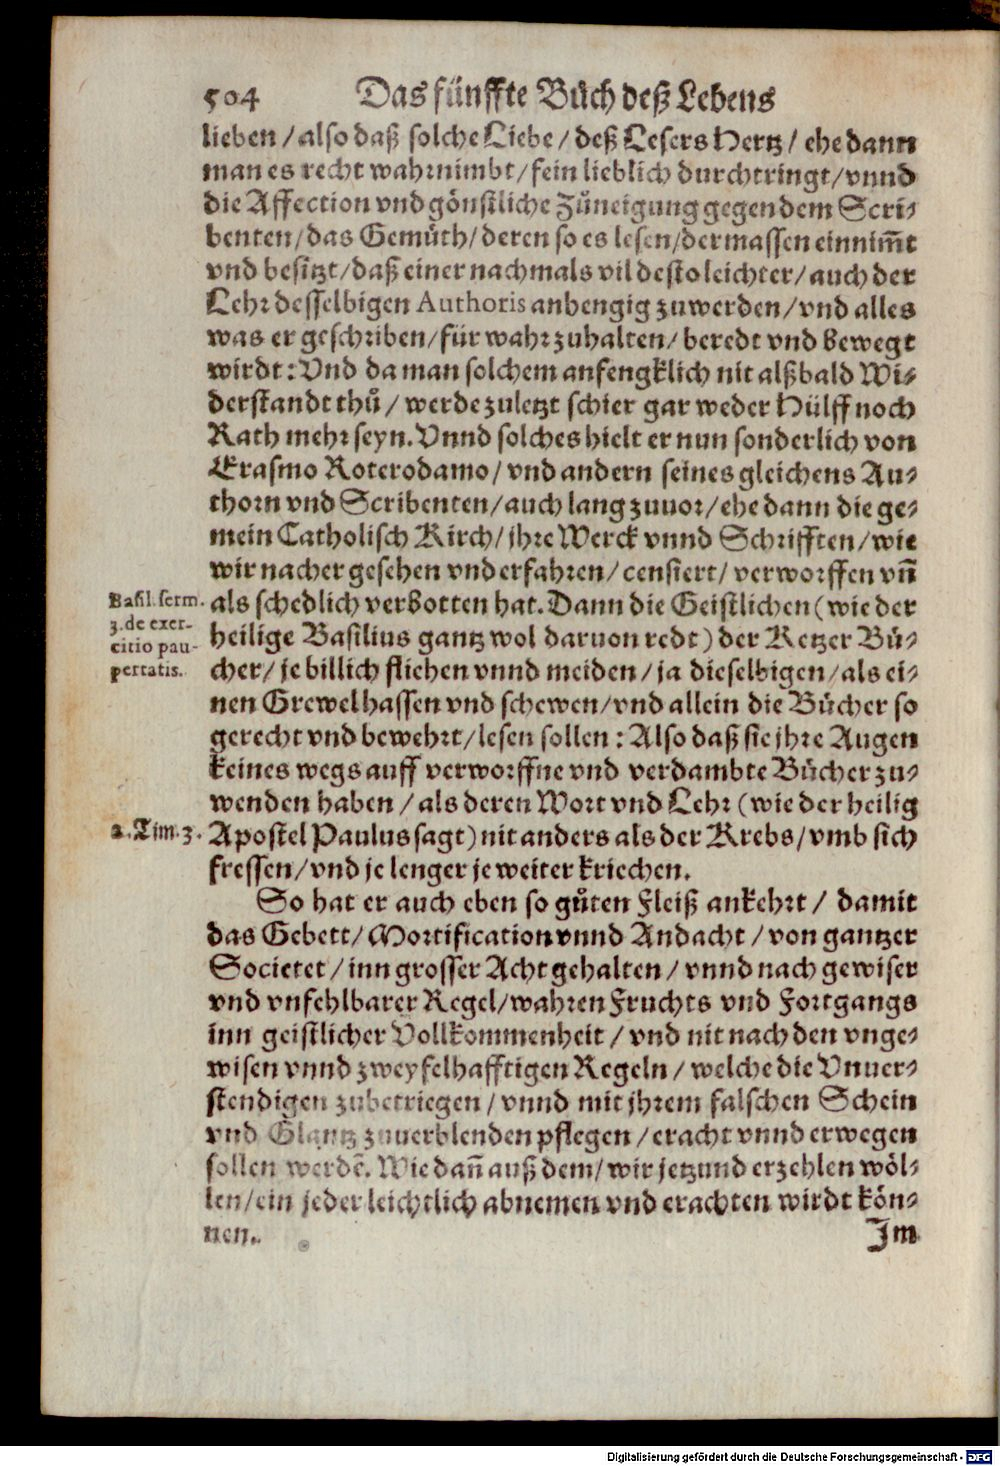 504 Das fünffte Bůch deß Lebens
lieben / also daß solche Liebe / deß Lesers Hertz / ehe dann
man es recht wahrnimbt / fein lieblich durchtringt / vnnd
die Affection vnd gönstliche Zůneigung gegen dem Scri-
benten / das Gemůth / deren so es lesen / dermassen einnim̃t
vnd besitzt / daß einer nachmals vil desto leichter / auch der
Lehr desselbigen Authoris anhengig zuwerden / vnd alles
was er geschriben / für wahr zuhalten / beredt vnd bewegt
wirdt: Vnd da man solchem anfengklich nit alßbald Wi-
derstandt thů / werde zuletzt schier gar weder Hülff noch
Rath mehr seyn. Vnnd solches hielt er nun sonderlich von
Erasmo Roterodamo / vnd andern seines gleichens Au-
thorn vnd Scribenten / auch lang zuuor / ehe dann die ge-
mein Catholisch Kirch / jhre Werck vnnd Schrifften / wie
wir nacher gesehen vnd erfahren / censiert / verworffen vñ
Basil. serm.
3. de exer-
citio pau-
pertatis.
als schedlich verbotten hat. Dann die Geistlichen (wie der
heilige Basilius gantz wol daruon redt) der Ketzer Bü-
cher / je billich fliehen vnnd meiden / ja dieselbigen / als ei-
nen Grewel hassen vnd schewen / vnd allein die Bücher so
gerecht vnd bewehrt / lesen sollen: Also daß sie jhre Augen
keines wegs auff verworffne vnd verdambte Bücher zu-
wenden haben / als deren Wort vnd Lehr (wie der heilig
2. Tim. 3.
Apostel Paulus sagt) nit anders als der Krebs / vmb sich
fressen / vnd je lenger je weiter kriechen.
So hat er auch eben so gůten Fleiß ankehrt / damit
das Gebett / Mortification vnnd Andacht / von gantzer
Societet / inn grosser Acht gehalten / vnnd nach gewiser
vnd vnfehlbarer Regel / wahren Fruchts vnd Fortgangs
inn geistlicher Vollkommenheit / vnd nit nach den vnge-
wisen vnnd zweyfelhafftigen Regeln / welche die Vnuer-
stendigen zubetriegen / vnnd mit jhrem falschen Schein
vnd Glantz zuuerblenden pflegen / eracht vnnd erwegen
sollen werdē. Wie dañ auß dem / wir jetzund erzehlen wöl-
len / ein jeder leichtlich abnemen vnd erachten wirdt kön-
nen.
Im
Digitalisierung gefördert durch die Deutsche Forschungsgemeinschaft - DFG